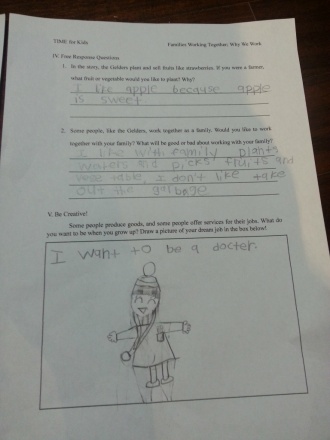 TIME for Kids
Families Working Together: Why We Work
IV. Free Response Questions
1. In the story, the Gelders plant and sell fruits like strawberries. If you were a farmer,
what fruit or vegetable would you like to plant? Why?
I like apple because apple
is sweet
2. Some people, like the Gelders, work together as a family. Would you like to work
together with your family? What will be good or bad about working with your family?
I like with family plants
waters and picks fruits and
vegetable, I don't like take
out the garbage
V. Be Creative!
Some people produce goods, and some people offer services for their jobs. What do
you want to be when you grow up? Draw a picture of your dream job in the box below!
I want to be a docter.